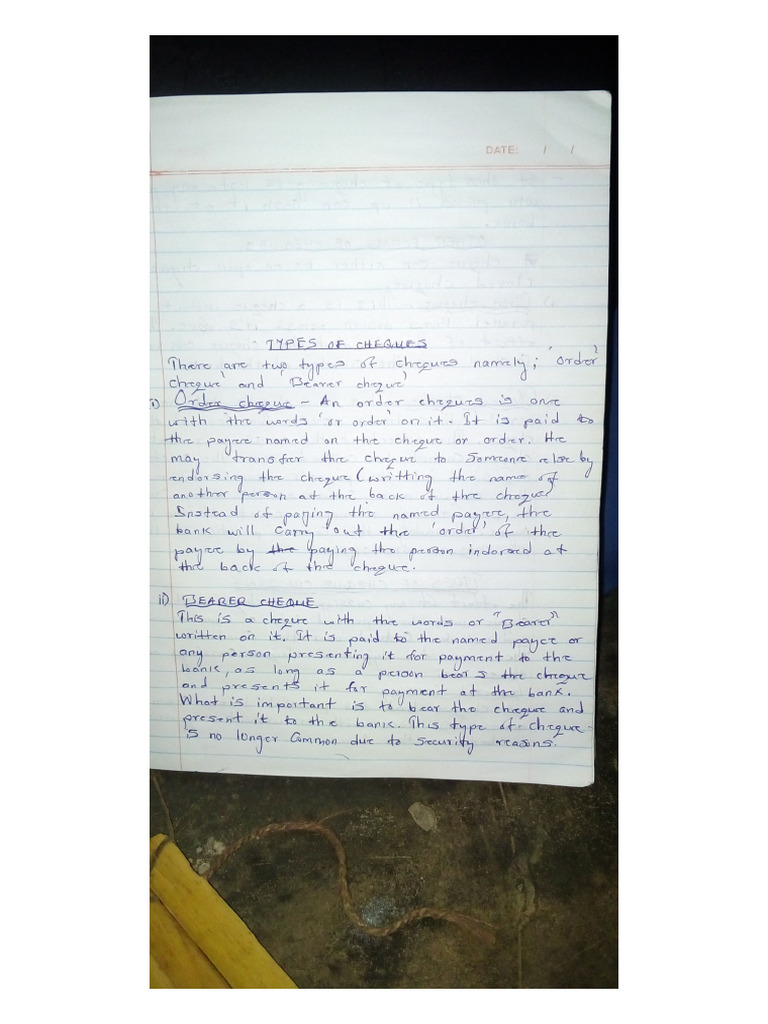 DATE: / /
TYPES OF CHEQUES
There are two types of cheques namely; 'order
cheque' and 'Bearer cheque'
i) Order cheque - An order cheques is one
with the words 'or order' on it. It is paid to
the payee named on the cheque or order. He
may transfer the cheque to someone else by
endorsing the cheque (writting the name of
another person at the back of the cheque
Instead of paying the named payee, the
bank will carry out the 'order' of the
payee by the paying the person indorsed at
the back of the cheque.
ii) BEARER CHEQUE
This is a cheque with the words or "Bearer"
written on it. It is paid to the named payee or
any person presenting it for payment to the
bank, as long as a person bears the cheque
and presents it for payment at the bank.
What is important is to bear the cheque and
present it to the bank. This type of cheque
is no longer common due to security reasons.